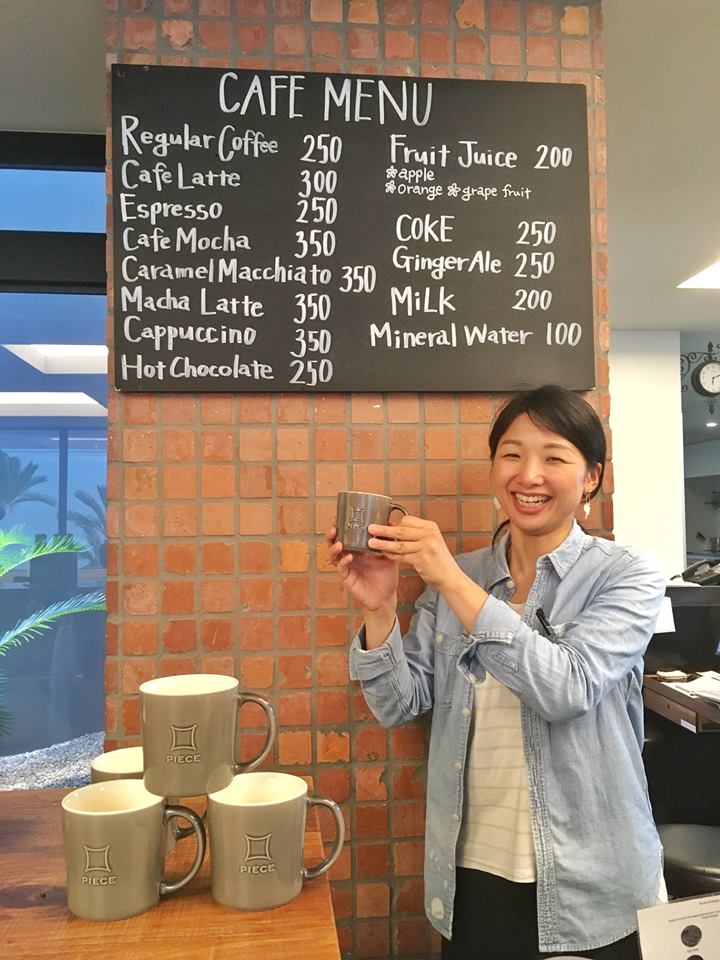 CAFE MENU
Regular Coffee 250
Cafe Latte 300
Espresso 250
Cafe Mocha 350
Caramel Macchiato 350
Macha Latte 350
Cappuccino 350
Hot Chocolate 250
Fruit Juice 200
❀apple
❀orange ❀grape fruit
COKE 250
Ginger Ale 250
MiLK 200
Mineral Water 100
PIECE
PIECE
PIECE
PIECE